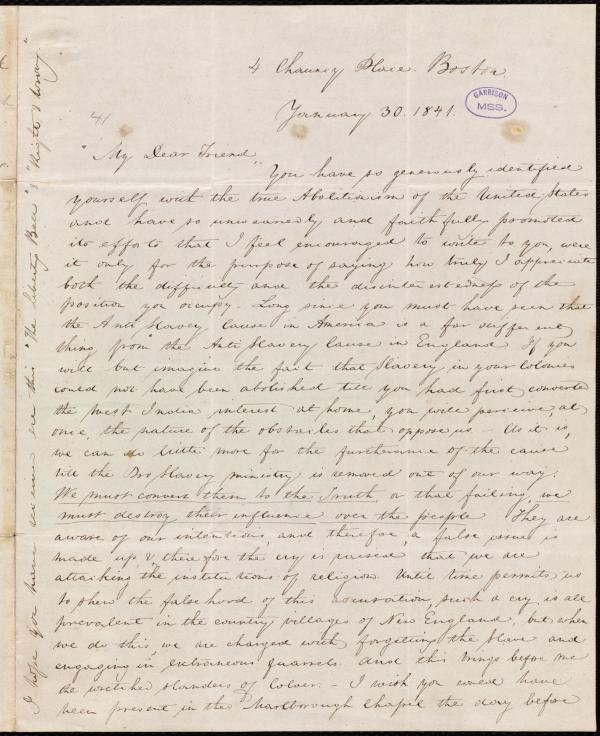 4 Chauncy Place. Boston.
January 30. 1841.
GARRISON
MSS.
41
"My Dear Friend"
You have so generously identified
yourself with the true Abolitionism of the United States
and have so unweariedly and faithfully promoted
its efforts that I feel encouraged to write to you, were
it only for the purpose of saying how truly I appreciate
both the difficulty and the disinterestedness of the
position you occupy. Long since you must have seen that
the Anti Slavery Cause in America is a far different
thing from the Anti Slavery Cause in England. If you
will but imagine the fact that Slavery in your Colonies
could not have been abolished till you had first converted
the West India interest at home, you will perceive, at
once, the nature of the obstacles that oppose us – As it is,
we can do little more for the furtherance of the cause
till the Pro Slavery ministry is removed out of our way.
We must convert them to the Truth or that failing, we
must destroy their influence over the people. They are
aware of our intentions and therefore, a false issue is
made up, & therefore the cry is raised that we are
attacking the institutions of religion. Until time permits us
to shew the falsehood of this accusation, such a cry is all
prevalent in the country villages of New England, but when
we do this, we are charged with forgetting the slave and
engaging in extraneous quarrels. And this brings before me
the wretched slanders of Colver. – I wish you could have
been present in the Marlborough Chapel the day before
I hope you have seen ere this "The Liberty Bell" &